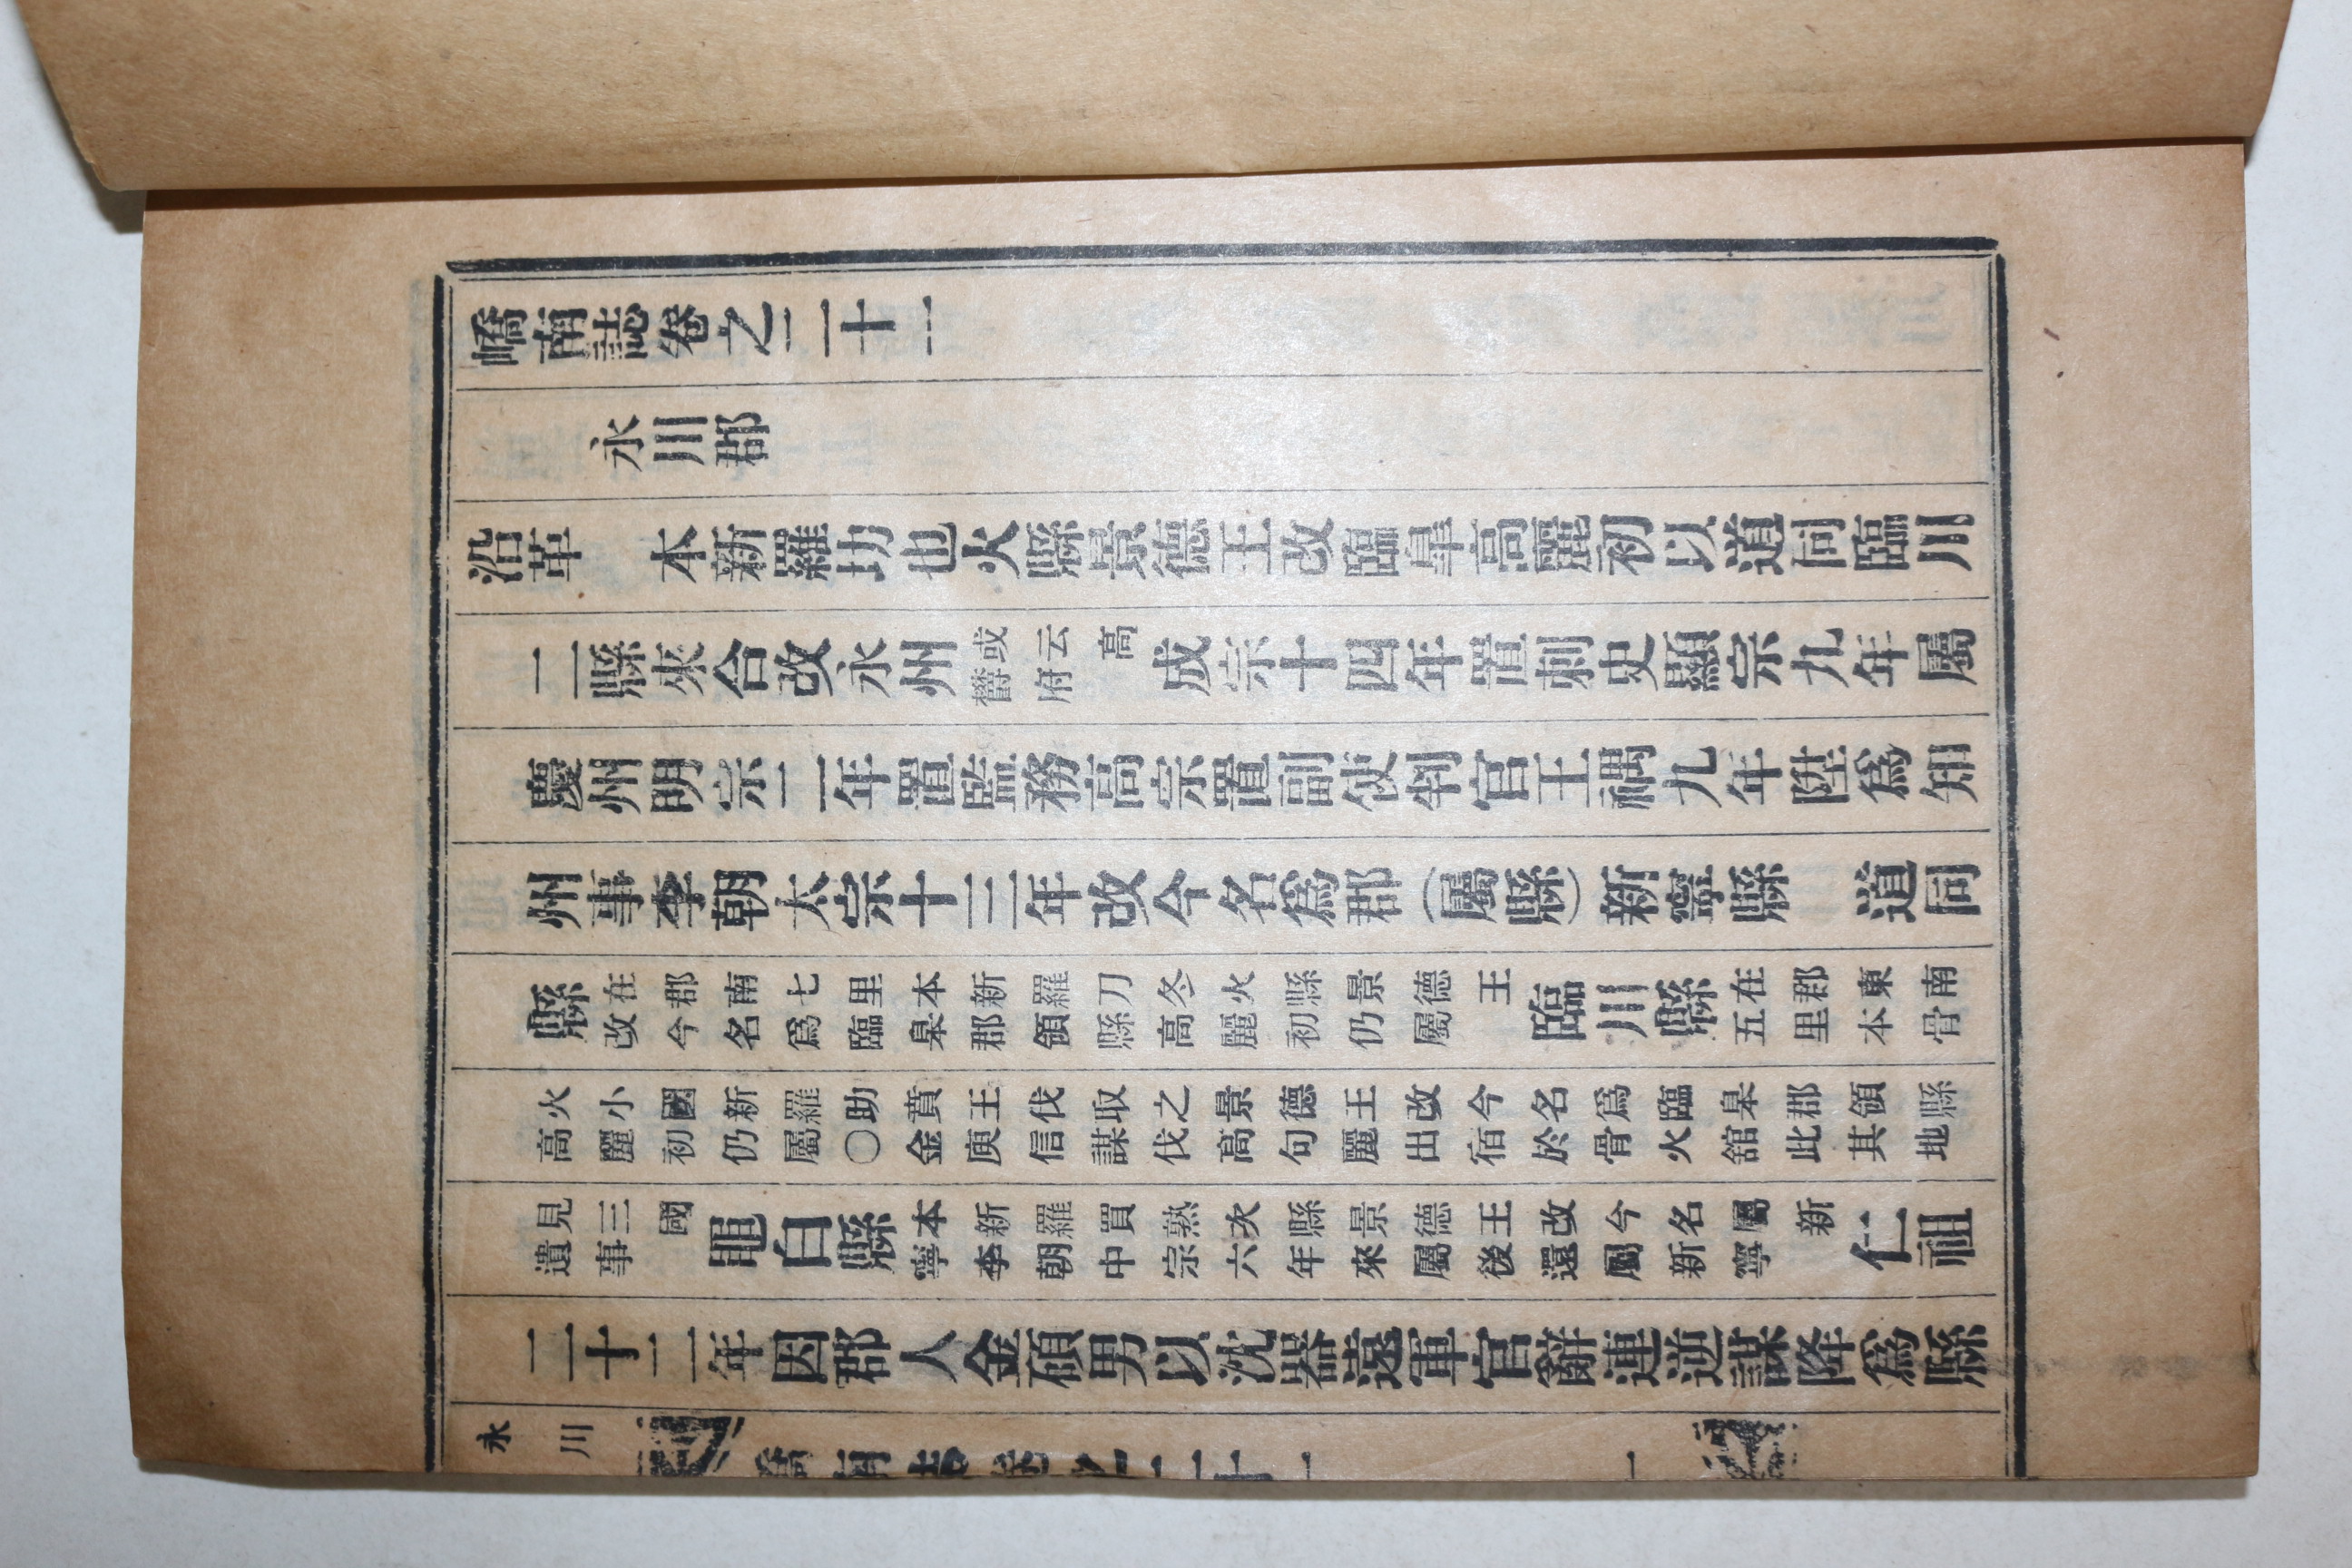 嶠南誌卷之二十一
永川郡
沿革 本新羅切也火縣景德王改臨皐高麗初以道同臨川
二縣來合改永州或云高鬱府成宗十四年置刺史顯宗九年屬
慶州明宗二年置監務高宗置副使判官王禑九年陞爲知
州事李朝太宗十三年改今名爲郡(屬縣)新寧縣 道同
縣在郡南七里本新羅刀冬火縣景德王改今名爲臨皐郡領縣高麗初仍屬臨川縣在郡東南五里本骨
火小國新羅助賁王伐取之景德王改今名爲臨皐郡領縣高麗初仍屬○金庾信謀伐高句麗出宿於骨火舘此其地
見三國遺事黽白縣本新羅買熟次縣景德王改今名屬新寧李朝中宗六年來屬後還屬新寧仁祖
二十二年因郡人金碩男以沈器遠軍官辭連逆謀降爲縣
永川 嶠南誌卷之二十一 一